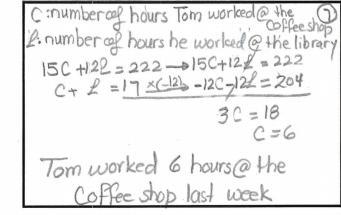 C: number of hours Tom worked @ the coffee shop 7
L: number of hours he worked @ the library
15C + 12L = 222 → 15C + 12L = 222
C + L = 17 x(-12) → -12C - 12L = 204
3C = 18
C = 6
Tom worked 6 hours @ the
Coffee shop last week